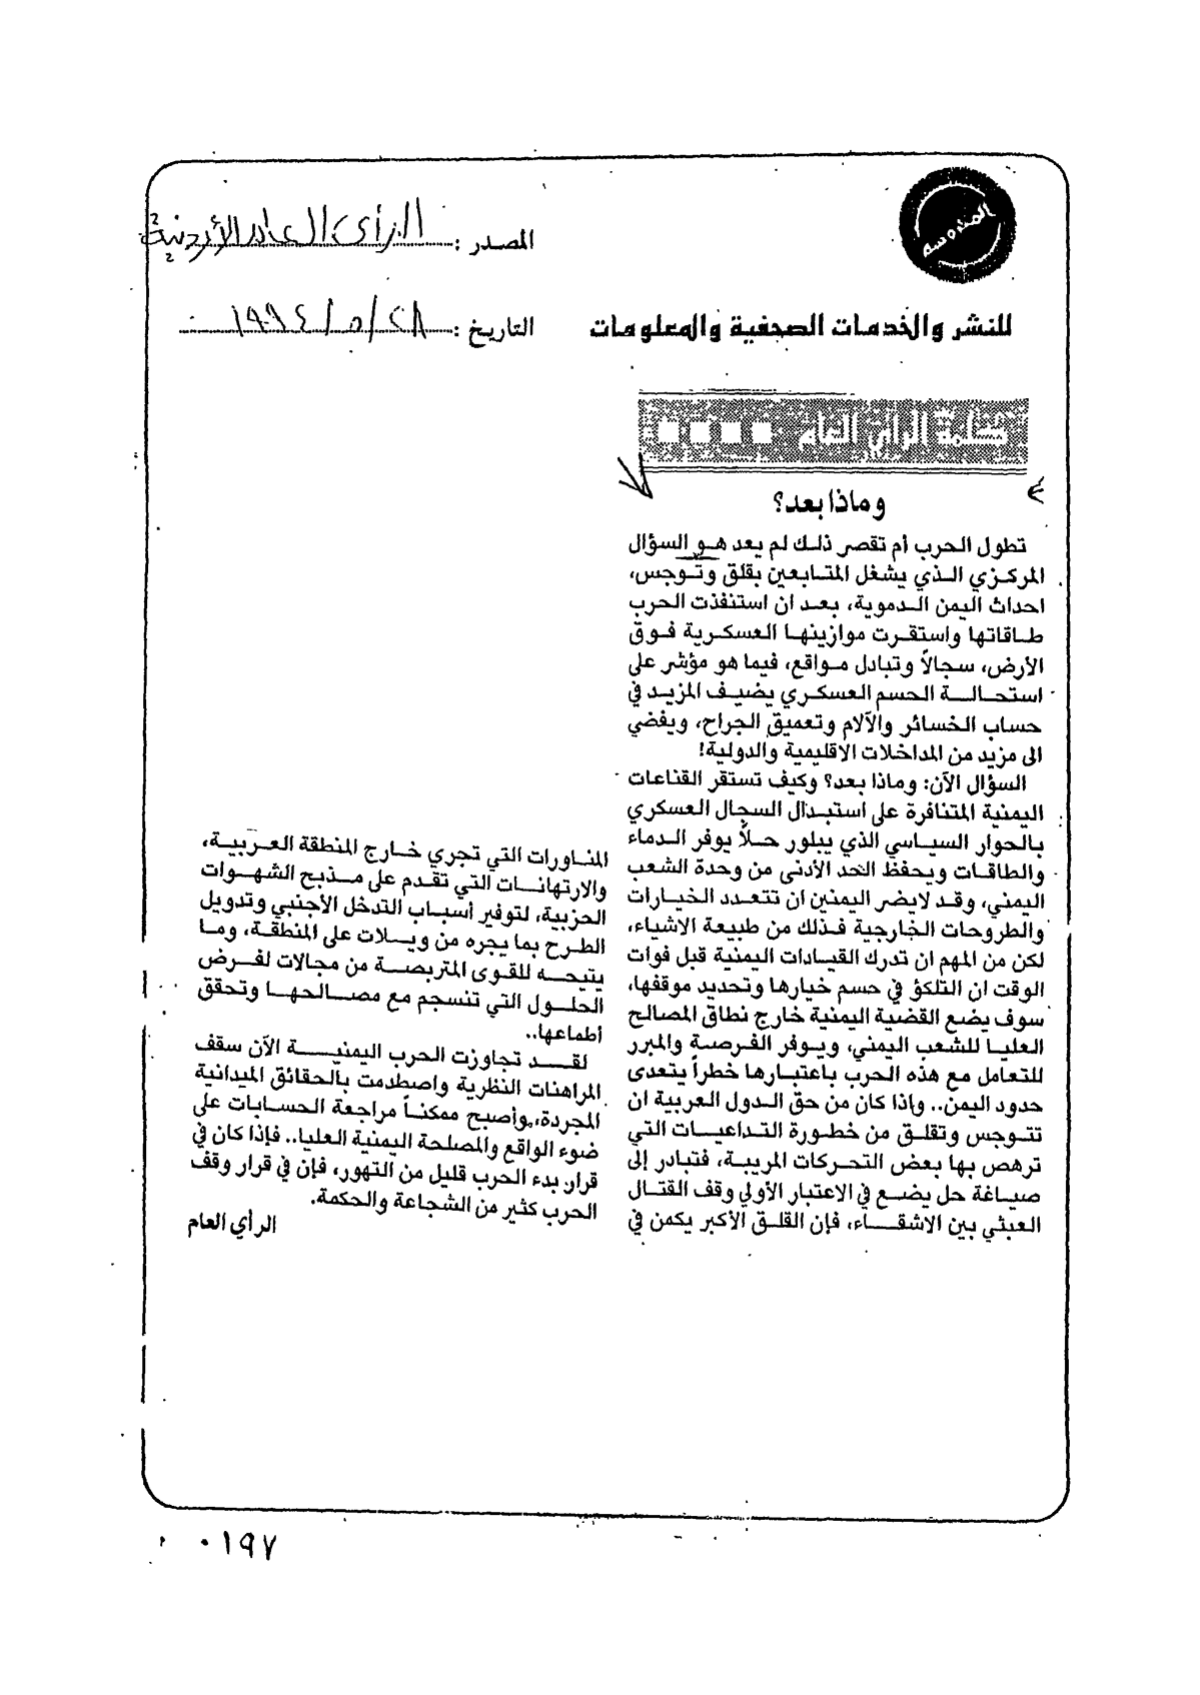 المحروسة
المصدر : الرأى العام الأردنية
التاريخ : ٢٨ / ٥ / ١٩٩٤
للنشر والخدمات الصحفية والمعلومات
كلمة الرأي العام
وماذا بعد؟
تطول الحرب أم تقصر ذلك لم يعد هو السؤال
المركزي الذي يشغل المتابعين بقلق وتوجس،
احداث اليمن الدموية، بعد ان استنفذت الحرب
طاقاتها واستقرت موازينها العسكرية فوق
الأرض، سجالاً وتبادل مواقع، فيما هو مؤشر على
استحالة الحسم العسكري يضيف المزيد في
حساب الخسائر والآلام وتعميق الجراح، ويفضي
الى مزيد من المداخلات الاقليمية والدولية!
السؤال الآن: وماذا بعد؟ وكيف تستقر القناعات
اليمنية المتنافرة على استبدال السجال العسكري
بالحوار السياسي الذي يبلور حلاً يوفر الدماء
والطاقات ويحفظ الحد الأدنى من وحدة الشعب
اليمني، وقد لايضر اليمنين ان تتعدد الخيارات
والطروحات الخارجية فذلك من طبيعة الاشياء،
لكن من المهم ان تدرك القيادات اليمنية قبل فوات
الوقت ان التلكؤ في حسم خيارها وتحديد موقفها،
سوف يضع القضية اليمنية خارج نطاق المصالح
العليا للشعب اليمني، ويوفر الفرصة والمبرر
للتعامل مع هذه الحرب باعتبارها خطراً يتعدى
حدود اليمن.. واذا كان من حق الدول العربية ان
تتوجس وتقلق من خطورة التداعيات التي
ترهص بها بعض التحركات المريبة، فتبادر إلى
صياغة حل يضع في الاعتبار الأولي وقف القتال
العبثي بين الاشقاء، فإن القلق الأكبر يكمن في
المناورات التي تجري خارج المنطقة العربية،
والارتهانات التي تقدم على مذبح الشهوات
الحزبية، لتوفير أسباب التدخل الأجنبي وتدويل
الطرح بما يجره من ويلات على المنطقة، وما
يتيحه للقوى المتربصة من مجالات لفرض
الحلول التي تنسجم مع مصالحها وتحقق
أطماعها..
لقد تجاوزت الحرب اليمنية الآن سقف
المراهنات النظرية واصطدمت بالحقائق الميدانية
المجردة، وأصبح ممكناً مراجعة الحسابات على
ضوء الواقع والمصلحة اليمنية العليا.. فإذا كان في
قرار بدء الحرب قليل من التهور، فإن في قرار وقف
الحرب كثير من الشجاعة والحكمة.
الرأي العام
٠١٩٧